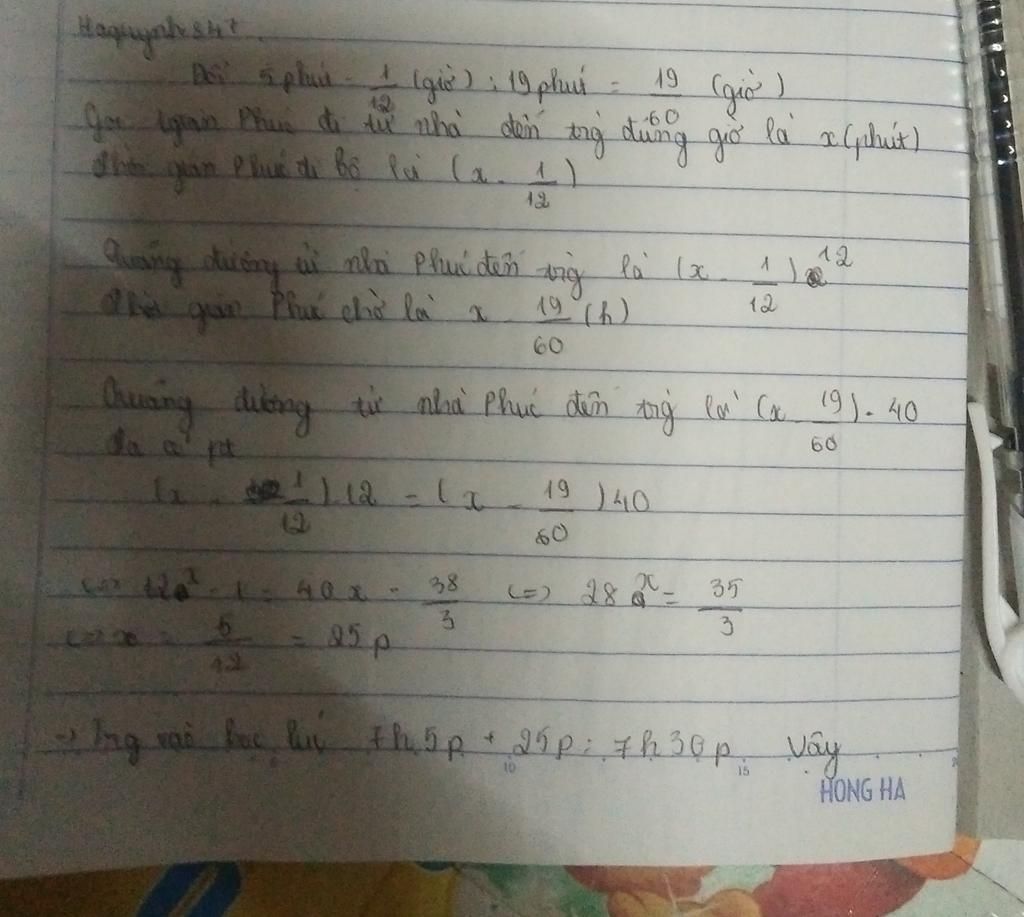 Haquynh84t
Đổi 5 phút = 1/12 (giờ) ; 19 phút = 19/60 (giờ)
Gọi tgian Phúc đi từ nhà đến trg đúng giờ là x (phút)
Thời gian Phúc đi bộ là (x - 1/12)
Quãng đường từ nhà Phúc đến trg là (x - 1/12) 12
Thời gian Phúc chờ là x - 19/60 (h)
Quãng đường từ nhà Phúc đến trg là (x - 19/60) . 40
Ta có pt
(x - 1/12) 12 = (x - 19/60) 40
<=> 12x - 1 = 40x - 38/3 <=> 28x = 35/3
<=> x = 5/12 = 25p
-> Trg vào học lúc 7h5p + 25p = 7h30p Vậy
10 15
HONG HA